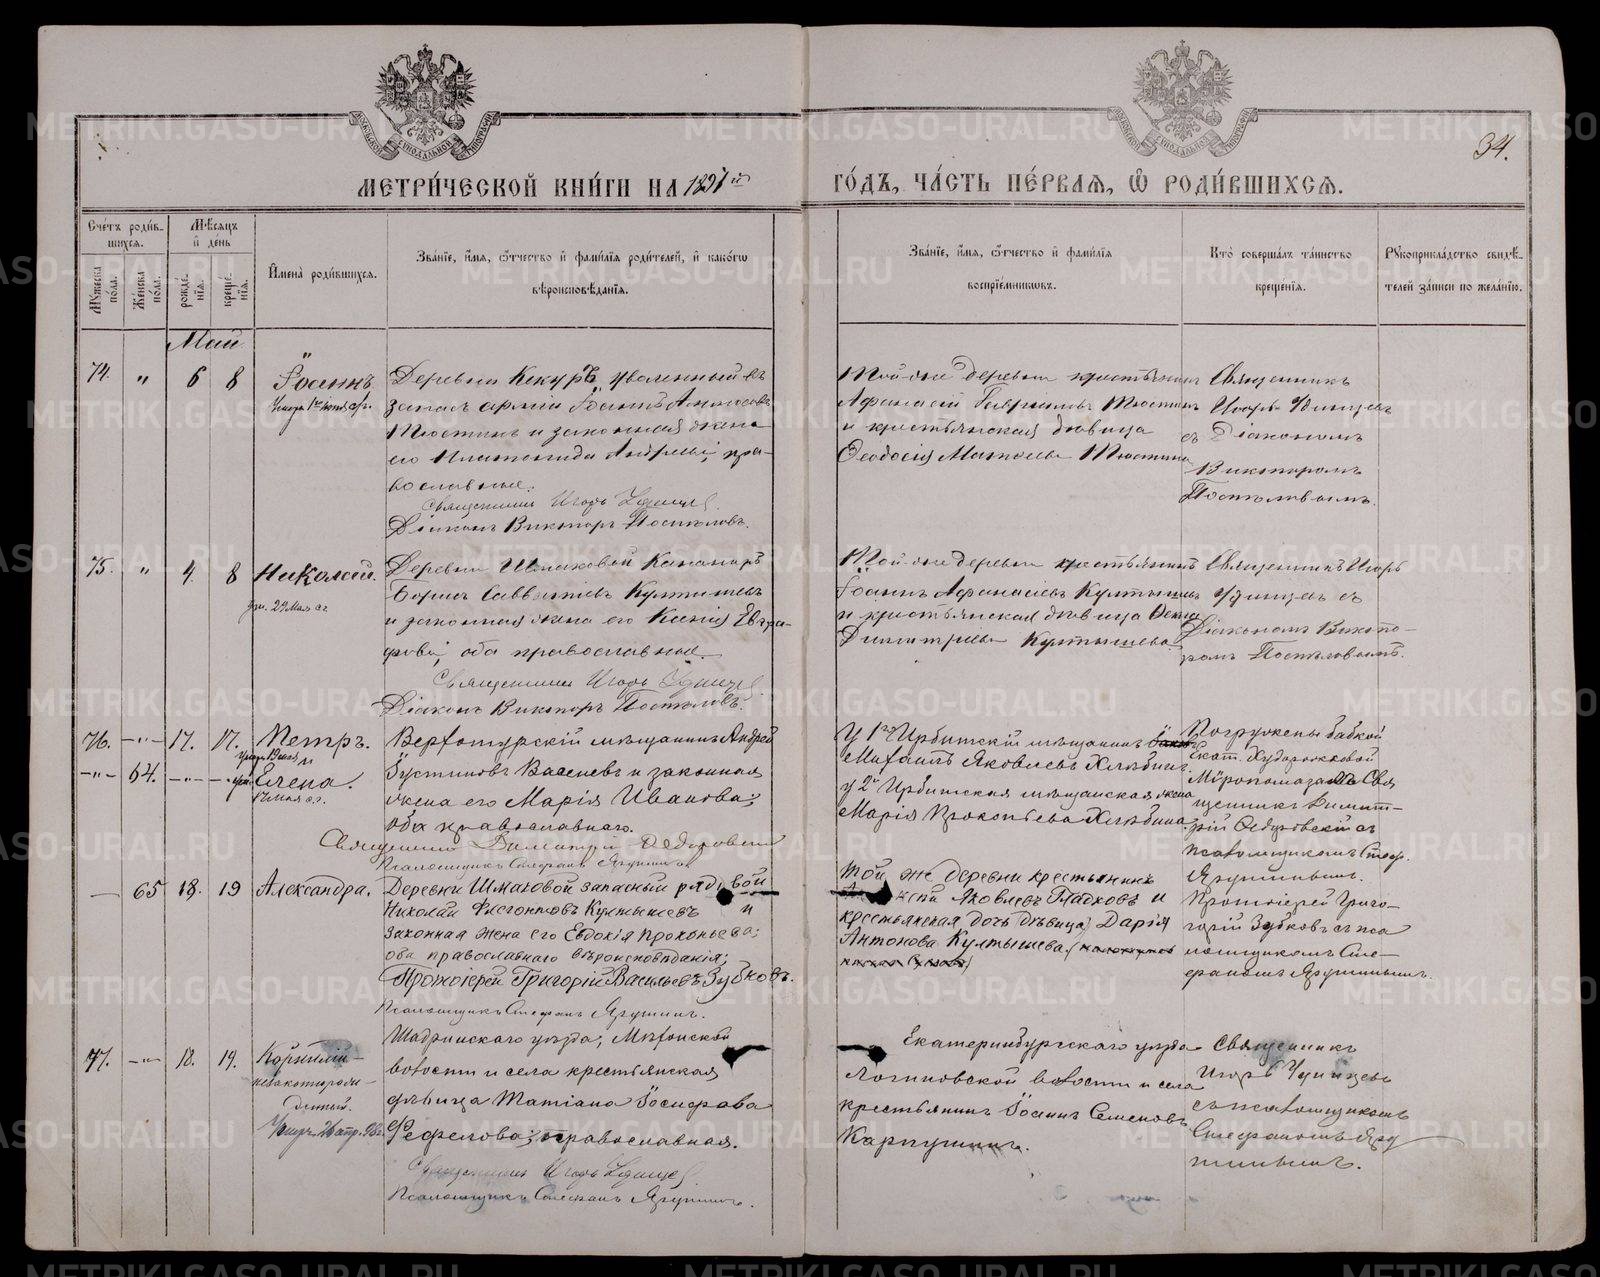 34.
МЕТРИ́ЧЕСКОЙ КНИ́ГИ НА 1897й ГО́ДЪ, ЧА́СТЬ ПЕ́РВАЯ, Ѡ РОДИ́ВШИХСЯ.
Сче́тъ роди́в-
шихся.
Мꙋ́жеска по́ла.
Же́нска по́ла.
Мѣ́сяцъ и҆ де́нь
рожде́нїя.
креще́нїя.
И҆мена̀ роди́вшихся.
Зва́нїе, и҆́мя, ѻ҆́тчество и҆ фами́лїя роди́телей, и҆ како́гѡ
вѣроисповѣ́данїя.
Зва́нїе, и҆́мя, ѻ҆́тчество и҆ фами́лїя
воспрїе́мниковъ.
Кто̀ соверша́лъ та́инство
креще́нїя.
Рꙋкоприкла́дство свидѣ́-
телей за́писи по жела́нїю.
Май
74. " 6 8 Іоаннъ.
Деревни Кекуръ, уволенный въ
запасъ арміи Іоаннъ
Тюстинъ и законная жена
его Платонида Андреева, пра-
вославные.
Священникъ Игорь Удинцев.
Діаконъ Викторъ Постѣловъ.
Той-же деревни крестьянинъ
Афанасій Гавріиловъ Тюстинъ
и крестьянская дѣвица
Феодосія Матѳеева Тюстина
Священникъ
Игорь Удинцевъ
съ Діакономъ
Викторомъ
Постѣловымъ.
75. " 4. 8 Николай.
ум. 29 Мая с.г.
Деревни Шмаковой
Борисъ Савватіевъ Култышевъ
и законная жена его Ксенія Евгра-
фова, оба православные.
Священникъ Игорь Удинцев.
Діаконъ Викторъ Постѣловъ.
Той-же деревни крестьянинъ
Іоаннъ Афанасіевъ Култышевъ
и крестьянская дѣвица
Димитріева Култышева.
Священникъ Игорь
Удинцевъ съ
Діакономъ Викто-
ромъ Постѣловымъ.
76. —"— 17. 17. Петръ.
—"— 64. —"— —"— Елена.
Верхотурскій мѣщанинъ Андрей
Іустиновъ и законная
жена его Марія Иванова;
оба православнаго.
Священникъ Димитрій Федоровскій
Псаломщикъ Стефанъ Ярушинъ
У 1го Ирбитскій мѣщанинъ
Михаилъ Яковлевъ Хлѣбинъ.
у 2й Ирбитская мѣщанская жена
Марія Прокопьева Хлѣбина.
Погружены бабкой
Екат. Худорожковой
Мѵропомазалъ Свя
щенникъ Димит-
рій Федоровскій съ
псаломщикомъ Стеф.
Ярушинымъ.
— 65 18. 19 Александра.
Деревни Шмаковой запасный рядовой
Николай Флегонтовъ Култышевъ и
законная жена его Евдокія Прокопьева;
оба православнаго вѣроисповѣданія;
Протоіерей Григорій Васильевъ Зубковъ.
Псаломщикъ Стефанъ Ярушинъ.
Той же деревни крестьянинъ
Яковлевъ Гладковъ и
крестьянская дочь дѣвица Дарія
Антонова Култышева.
Протоіерей Григо-
горій Зубковъ съ пса
ломщикомъ Сте-
фаномъ Ярушинымъ.
77. —"— 18. 19. Корнилій-
незаконнорож-
денный.
Шадринскаго уѣзда, Мѣхонской
волости и села крестьянская
дѣвица Татіана Іосифова
Фефелова; православная.
Священникъ Игорь Удинцев.
Псаломщикъ Стефанъ Ярушинъ.
Екатеринбургскаго уѣзда
Логиновской волости и села
крестьянинъ Іоаннъ Семеновъ
Карпушинъ.
Священникъ
Игорь Удинцевъ
съ псаломщикомъ
Стефаномъ Яру
шинымъ.
METRIKI.GASO-URAL.RU